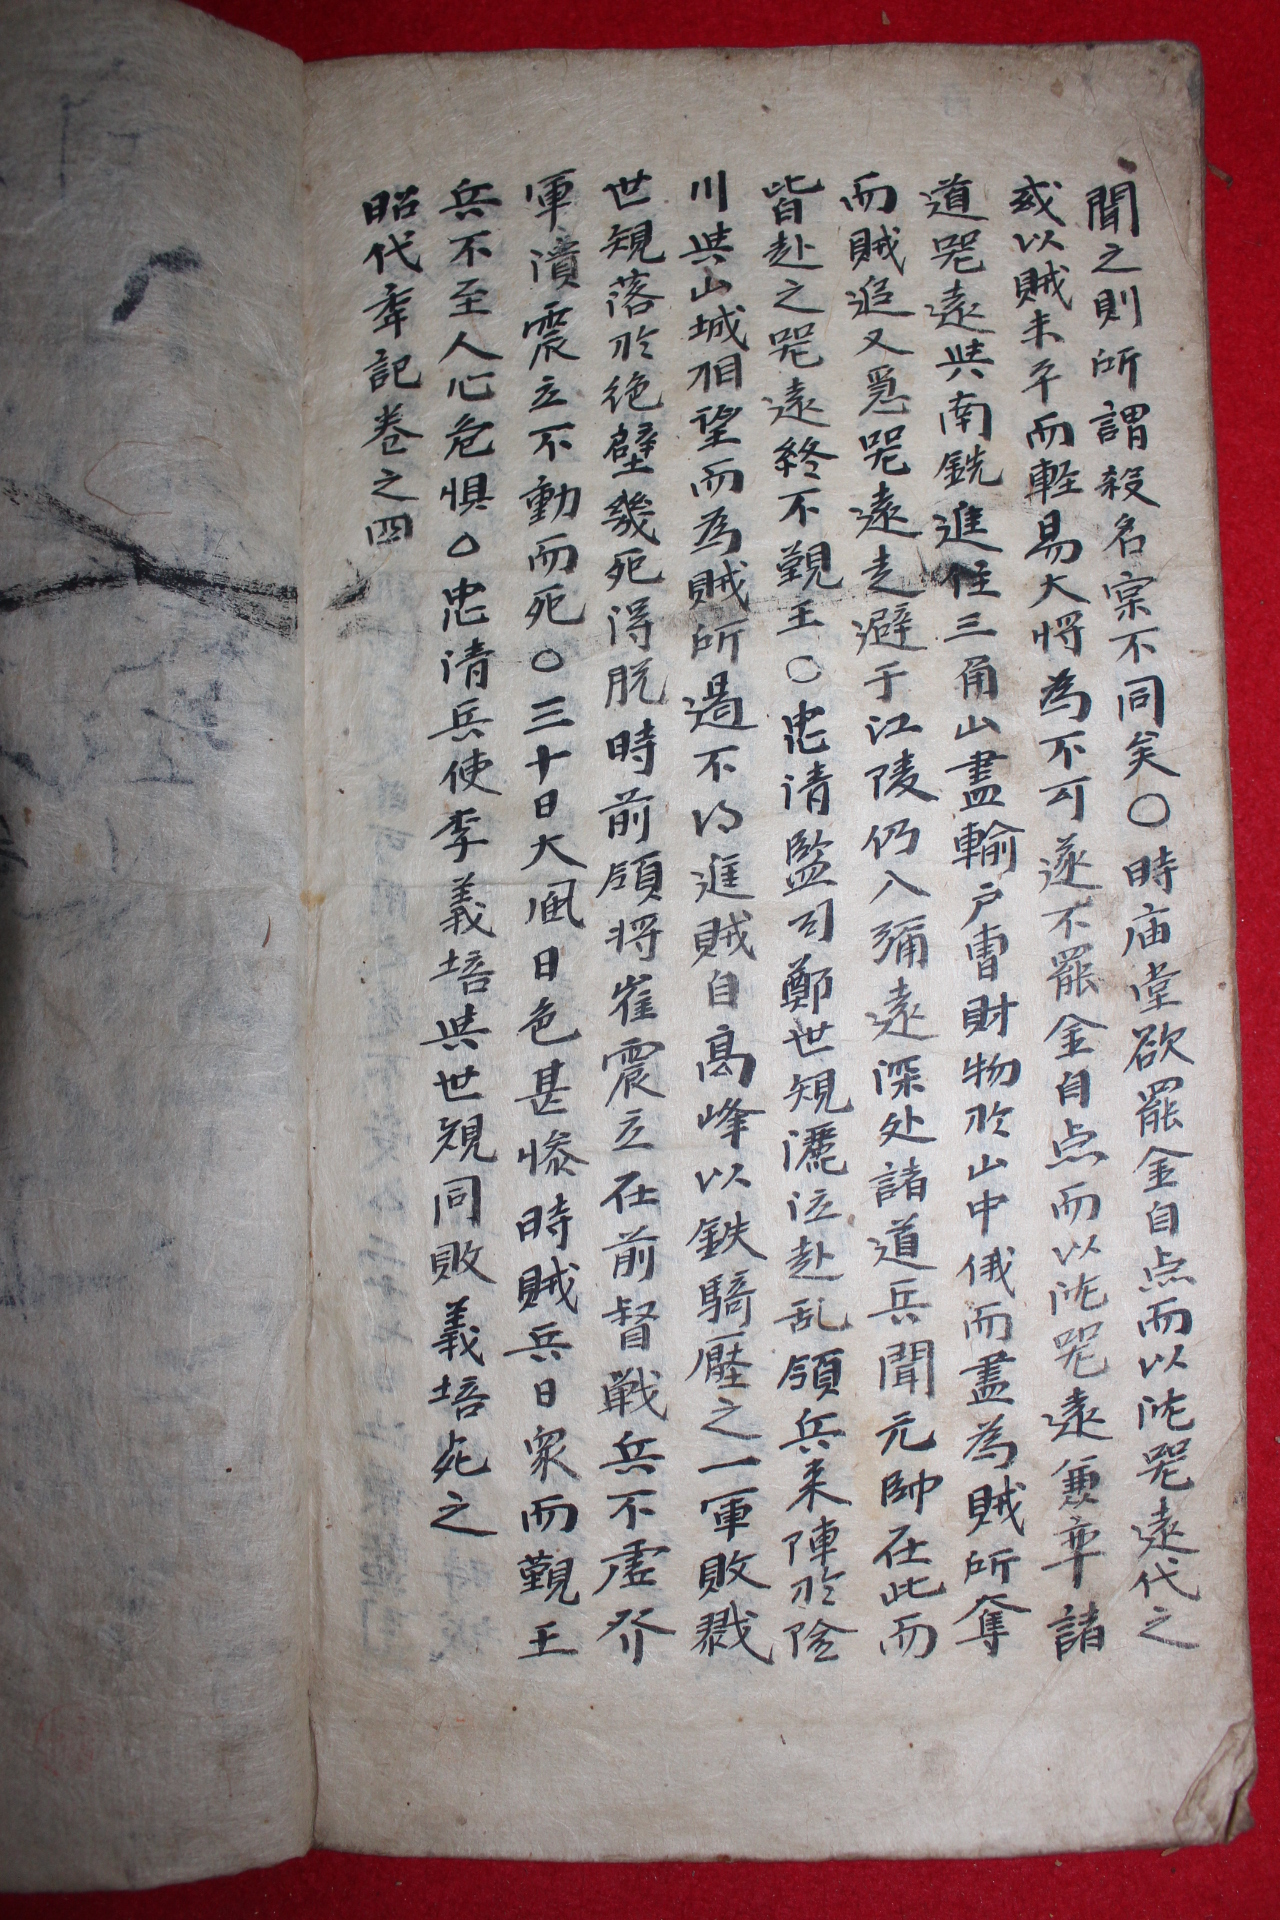 聞之則所謂殺名寀不同矣〇時庙堂欲罷金自点而以沈器遠代之
或以賊未平而輕易大将為不可遂不罷金自点而以沈器遠兼率諸
道器遠與南銑進住三角山盡輸户曺財物於山中俄而盡為賊所奪
而賊追又急器遠走避于江陵仍入彌遠深处諸道兵聞元帥在此而
皆赴之器遠終不覲王〇忠清監司鄭世規灑泣赴乱領兵来陣於險
川與山城相望而為賊所遏不得進賊自高峰以鉄騎壓之一軍敗戮
世規落於绝壁幾死得脱時前領将崔震立在前督戦兵不虚発
軍潰震立不動而死〇三十日大风日色甚惨時賊兵日衆而覲王
兵不至人心危惧〇忠清兵使李義培與世規同敗義培死之
昭代年記卷之四